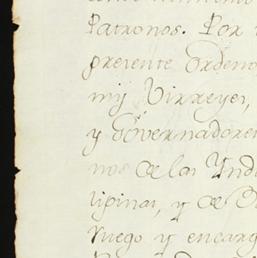 Patronos. Por
presente Ordeno
mij Virreyes,
y Governadores
nos de las Yndi
lipinas, y de
ruego y encarg